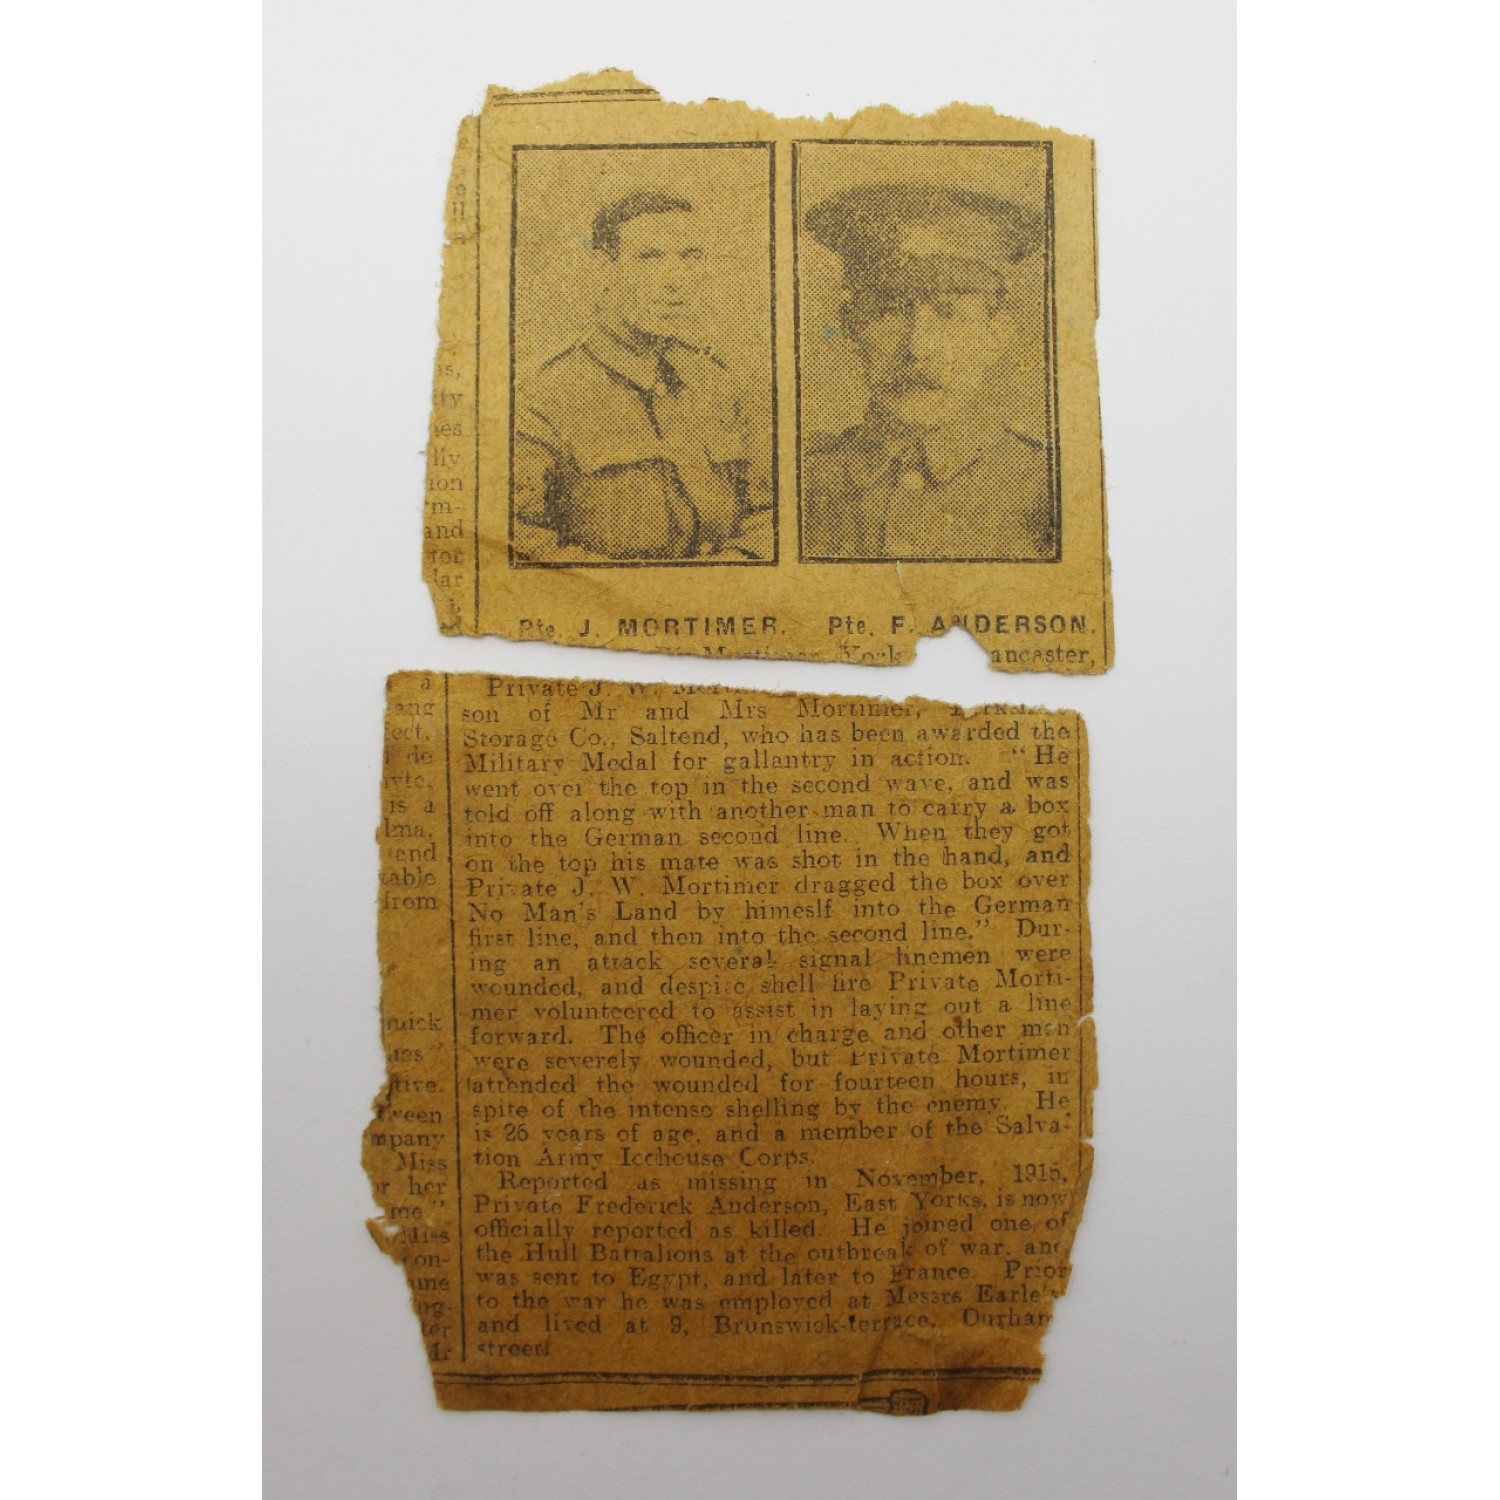 Pte. J. MORTIMER. Pte. F. ANDERSON.
Mortimer, York ancaster,
Private J. W.
son of Mr and Mrs Mortimer,
Storage Co., Saltend, who has been awarded the
Military Medal for gallantry in action. "He
went over the top in the second wave, and was
told off along with another man to carry a box
into the German second line. When they got
on the top his mate was shot in the hand, and
Private J. W. Mortimer dragged the box over
No Man's Land by himeslf into the German
first line, and then into the second line." Dur-
ing an attack several signal linemen were
wounded, and despite shell fire Private Morti-
mer volunteered to assist in laying out a line
forward. The officer in charge and other men
were severely wounded, but Private Mortimer
attended the wounded for fourteen hours, in
spite of the intense shelling by the enemy. He
is 26 years of age, and a member of the Salva-
tion Army Icehouse Corps.
Reported as missing in November, 1916,
Private Frederick Anderson, East Yorks, is now
officially reported as killed. He joined one of
the Hull Battalions at the outbreak of war, and
was sent to Egypt, and later to France. Prior
to the war he was employed at Messrs Earle's
and lived at 9, Brunswick-terrace, Durham
street.
is,
ty
nes
lly
ion
m-
and
for
lar
a
ang
ect.
de
yte,
is a
lma,
and
table
from
uick
ies"
tive.
tween
mpany
Miss
or her
me"
Miss
on-
ume
ng-
ter
Mr